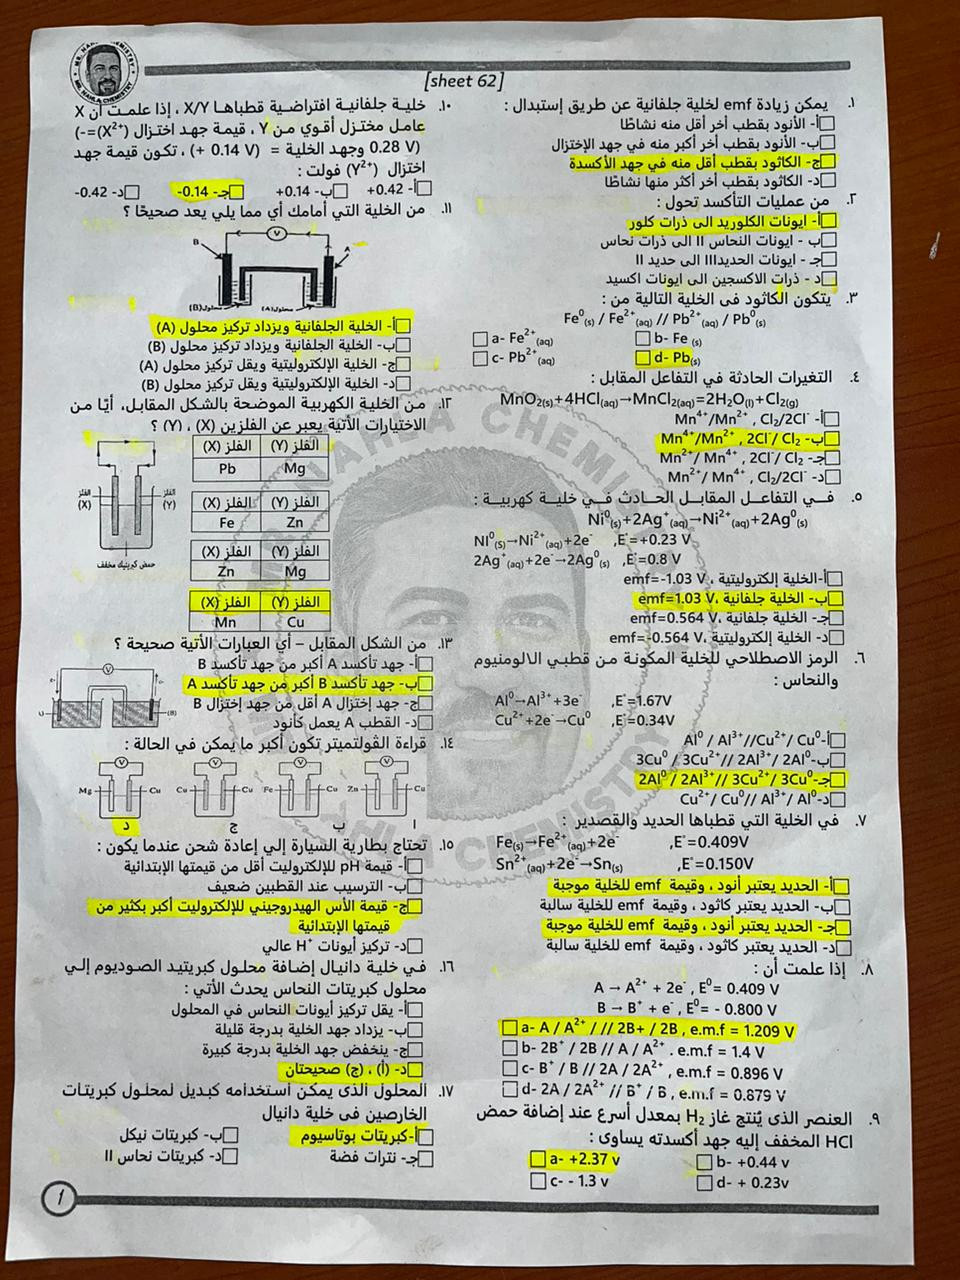 [sheet 62]
١. يمكن زيادة emf لخلية جلفانية عن طريق إستبدال :
أ- الأنود بقطب أخر أقل منه نشاطًا
ب- الأنود بقطب أخر أكبر منه في جهد الإختزال
ج- الكاثود بقطب أقل منه في جهد الأكسدة
د- الكاثود بقطب أخر أكثر منها نشاطًا
٢. من عمليات التأكسد تحول :
أ- ايونات الكلوريد الى ذرات كلور
ب - ايونات النحاس II الى ذرات نحاس
جـ - ايونات الحديدIII الى حديد II
د - ذرات الاكسجين الى ايونات اكسيد
٣. يتكون الكاثود فى الخلية التالية من :
Fe⁰(s) / Fe²⁺(aq) // Pb²⁺(aq) / Pb⁰(s)
a- Fe²⁺(aq) b- Fe (s)
c- Pb²⁺(aq) d- Pb(s)
٤. التغيرات الحادثة في التفاعل المقابل :
MnO2(s)+4HCl(aq)→MnCl2(aq)=2H2O(l)+Cl2(g)
أ- Mn⁴⁺/Mn²⁺ , Cl2/2Cl⁻
ب- Mn⁴⁺/Mn²⁺ , 2Cl⁻/ Cl2
جـ- Mn²⁺/ Mn⁴⁺ , 2Cl⁻/ Cl2
د- Mn²⁺/ Mn⁴⁺ , Cl2/2Cl⁻
٥. في التفاعل المقابل الحادث في خلية كهربية :
Ni⁰(s)+2Ag⁺(aq)→Ni²⁺(aq)+2Ag⁰(s)
NI⁰(S)→Ni²⁺(aq)+2e⁻ ,E°=+0.23 V
2Ag⁺(aq)+2e⁻→2Ag⁰(s) ,E°=0.8 V
أ-الخلية إلكتروليتية ، emf=-1.03 V
ب- الخلية جلفانية ، emf=1.03 V
جـ- الخلية جلفانية ، emf=0.564 V
د- الخلية إلكتروليتية ، emf=-0.564 V
٦. الرمز الاصطلاحي للخلية المكونة من قطبي الالومنيوم
والنحاس :
Al⁰→Al³⁺+3e⁻ ,E°=1.67V
Cu²⁺+2e⁻→Cu⁰ ,E°=0.34V
أ- Al⁰ / Al³⁺//Cu²⁺/ Cu⁰
ب- 3Cu⁰ / 3Cu²⁺// 2Al³⁺/ 2Al⁰
جـ- 2Al⁰ / 2Al³⁺// 3Cu²⁺/ 3Cu⁰
د- Cu²⁺/ Cu⁰// Al³⁺/ Al⁰
٧. في الخلية التي قطباها الحديد والقصدير :
Fe(s)→Fe²⁺(aq)+2e⁻ ,E°=0.409V
Sn²⁺(aq)+2e⁻→Sn(s) ,E°=0.150V
أ- الحديد يعتبر أنود ، وقيمة emf للخلية موجبة
ب- الحديد يعتبر كاثود ، وقيمة emf للخلية سالبة
جـ- الحديد يعتبر أنود ، وقيمة emf للخلية موجبة
د- الحديد يعتبر كاثود ، وقيمة emf للخلية سالبة
٨. إذا علمت أن :
A → A²⁺ + 2e⁻ , E⁰= 0.409 V
B → B⁺ + e⁻ , E⁰= - 0.800 V
a- A / A²⁺ / // 2B+ / 2B , e.m.f = 1.209 V
b- 2B⁺ / 2B // A / A²⁺ . e.m.f = 1.4 V
c- B⁺ / B // 2A / 2A²⁺ , e.m.f = 0.896 V
d- 2A / 2A²⁺ // B⁺ / B , e.m.f = 0.879 V
٩. العنصر الذى يُنتج غاز H2 بمعدل أسرع عند إضافة حمض
HCl المخفف إليه جهد أكسدته يساوى :
a- +2.37 v b- +0.44 v
c- - 1.3 v d- + 0.23v
١٠. خلية جلفانية افتراضية قطباها X/Y ، إذا علمت أن X
عامل مختزل أقوي من Y ، قيمة جهد اختزال (X²⁺)=(-
0.28 V) وجهد الخلية = (+ 0.14 V) ، تكون قيمة جهد
اختزال (Y²⁺) فولت :
أ- +0.42 ب- +0.14 جـ- -0.14 د- -0.42
١١. من الخلية التي أمامك أي مما يلي يعد صحيحًا ؟
V
B A
محلول(B) محلول(A)
أ- الخلية الجلفانية ويزداد تركيز محلول (A)
ب- الخلية الجلفانية ويزداد تركيز محلول (B)
ج- الخلية الإلكتروليتية ويقل تركيز محلول (A)
د- الخلية الإلكتروليتية ويقل تركيز محلول (B)
١٢. من الخلية الكهربية الموضحة بالشكل المقابل، أيًا من
الاختيارات الأتية يعبر عن الفلزين (X) ، (Y) ؟
الفلز (Y) الفلز (X)
Mg Pb
الفلز (Y) الفلز (X)
Zn Fe
الفلز (Y) الفلز (X)
Mg Zn
الفلز (Y) الفلز (X)
Cu Mn
الفلز (X) الفلز (Y)
حمض كبريتيك مخفف
١٣. من الشكل المقابل – أي العبارات الأتية صحيحة ؟
أ- جهد تأكسد A أكبر من جهد تأكسد B
ب- جهد تأكسد B أكبر من جهد تأكسد A
ج- جهد إختزال A أقل من جهد إختزال B
د- القطب A يعمل كأنود
V
e- e-
(B)
١٤. قراءة الڤولتميتر تكون أكبر ما يمكن في الحالة :
V V V V
Mg Cu Cu Cu Fe Cu Zn Cu
ا ب ج د
١٥. تحتاج بطارية السيارة إلي إعادة شحن عندما يكون :
أ- قيمة pH للإلكتروليت أقل من قيمتها الإبتدائية
ب- الترسيب عند القطبين ضعيف
ج- قيمة الأس الهيدروجيني للإلكتروليت أكبر بكثير من
قيمتها الإبتدائية
د- تركيز أيونات H⁺ عالي
١٦. في خلية دانيال إضافة محلول كبريتيد الصوديوم إلي
محلول كبريتات النحاس يحدث الأتي :
أ- يقل تركيز أيونات النحاس في المحلول
ب- يزداد جهد الخلية بدرجة قليلة
ج- ينخفض جهد الخلية بدرجة كبيرة
د- (أ) ، (ج) صحيحتان
١٧. المحلول الذى يمكن استخدامه كبديل لمحلول كبريتات
الخارصين فى خلية دانيال
أ-كبريتات بوتاسيوم ب- كبريتات نيكل
جـ- نترات فضة د- كبريتات نحاس II
MR. NAHLA CHEMISTRY
1